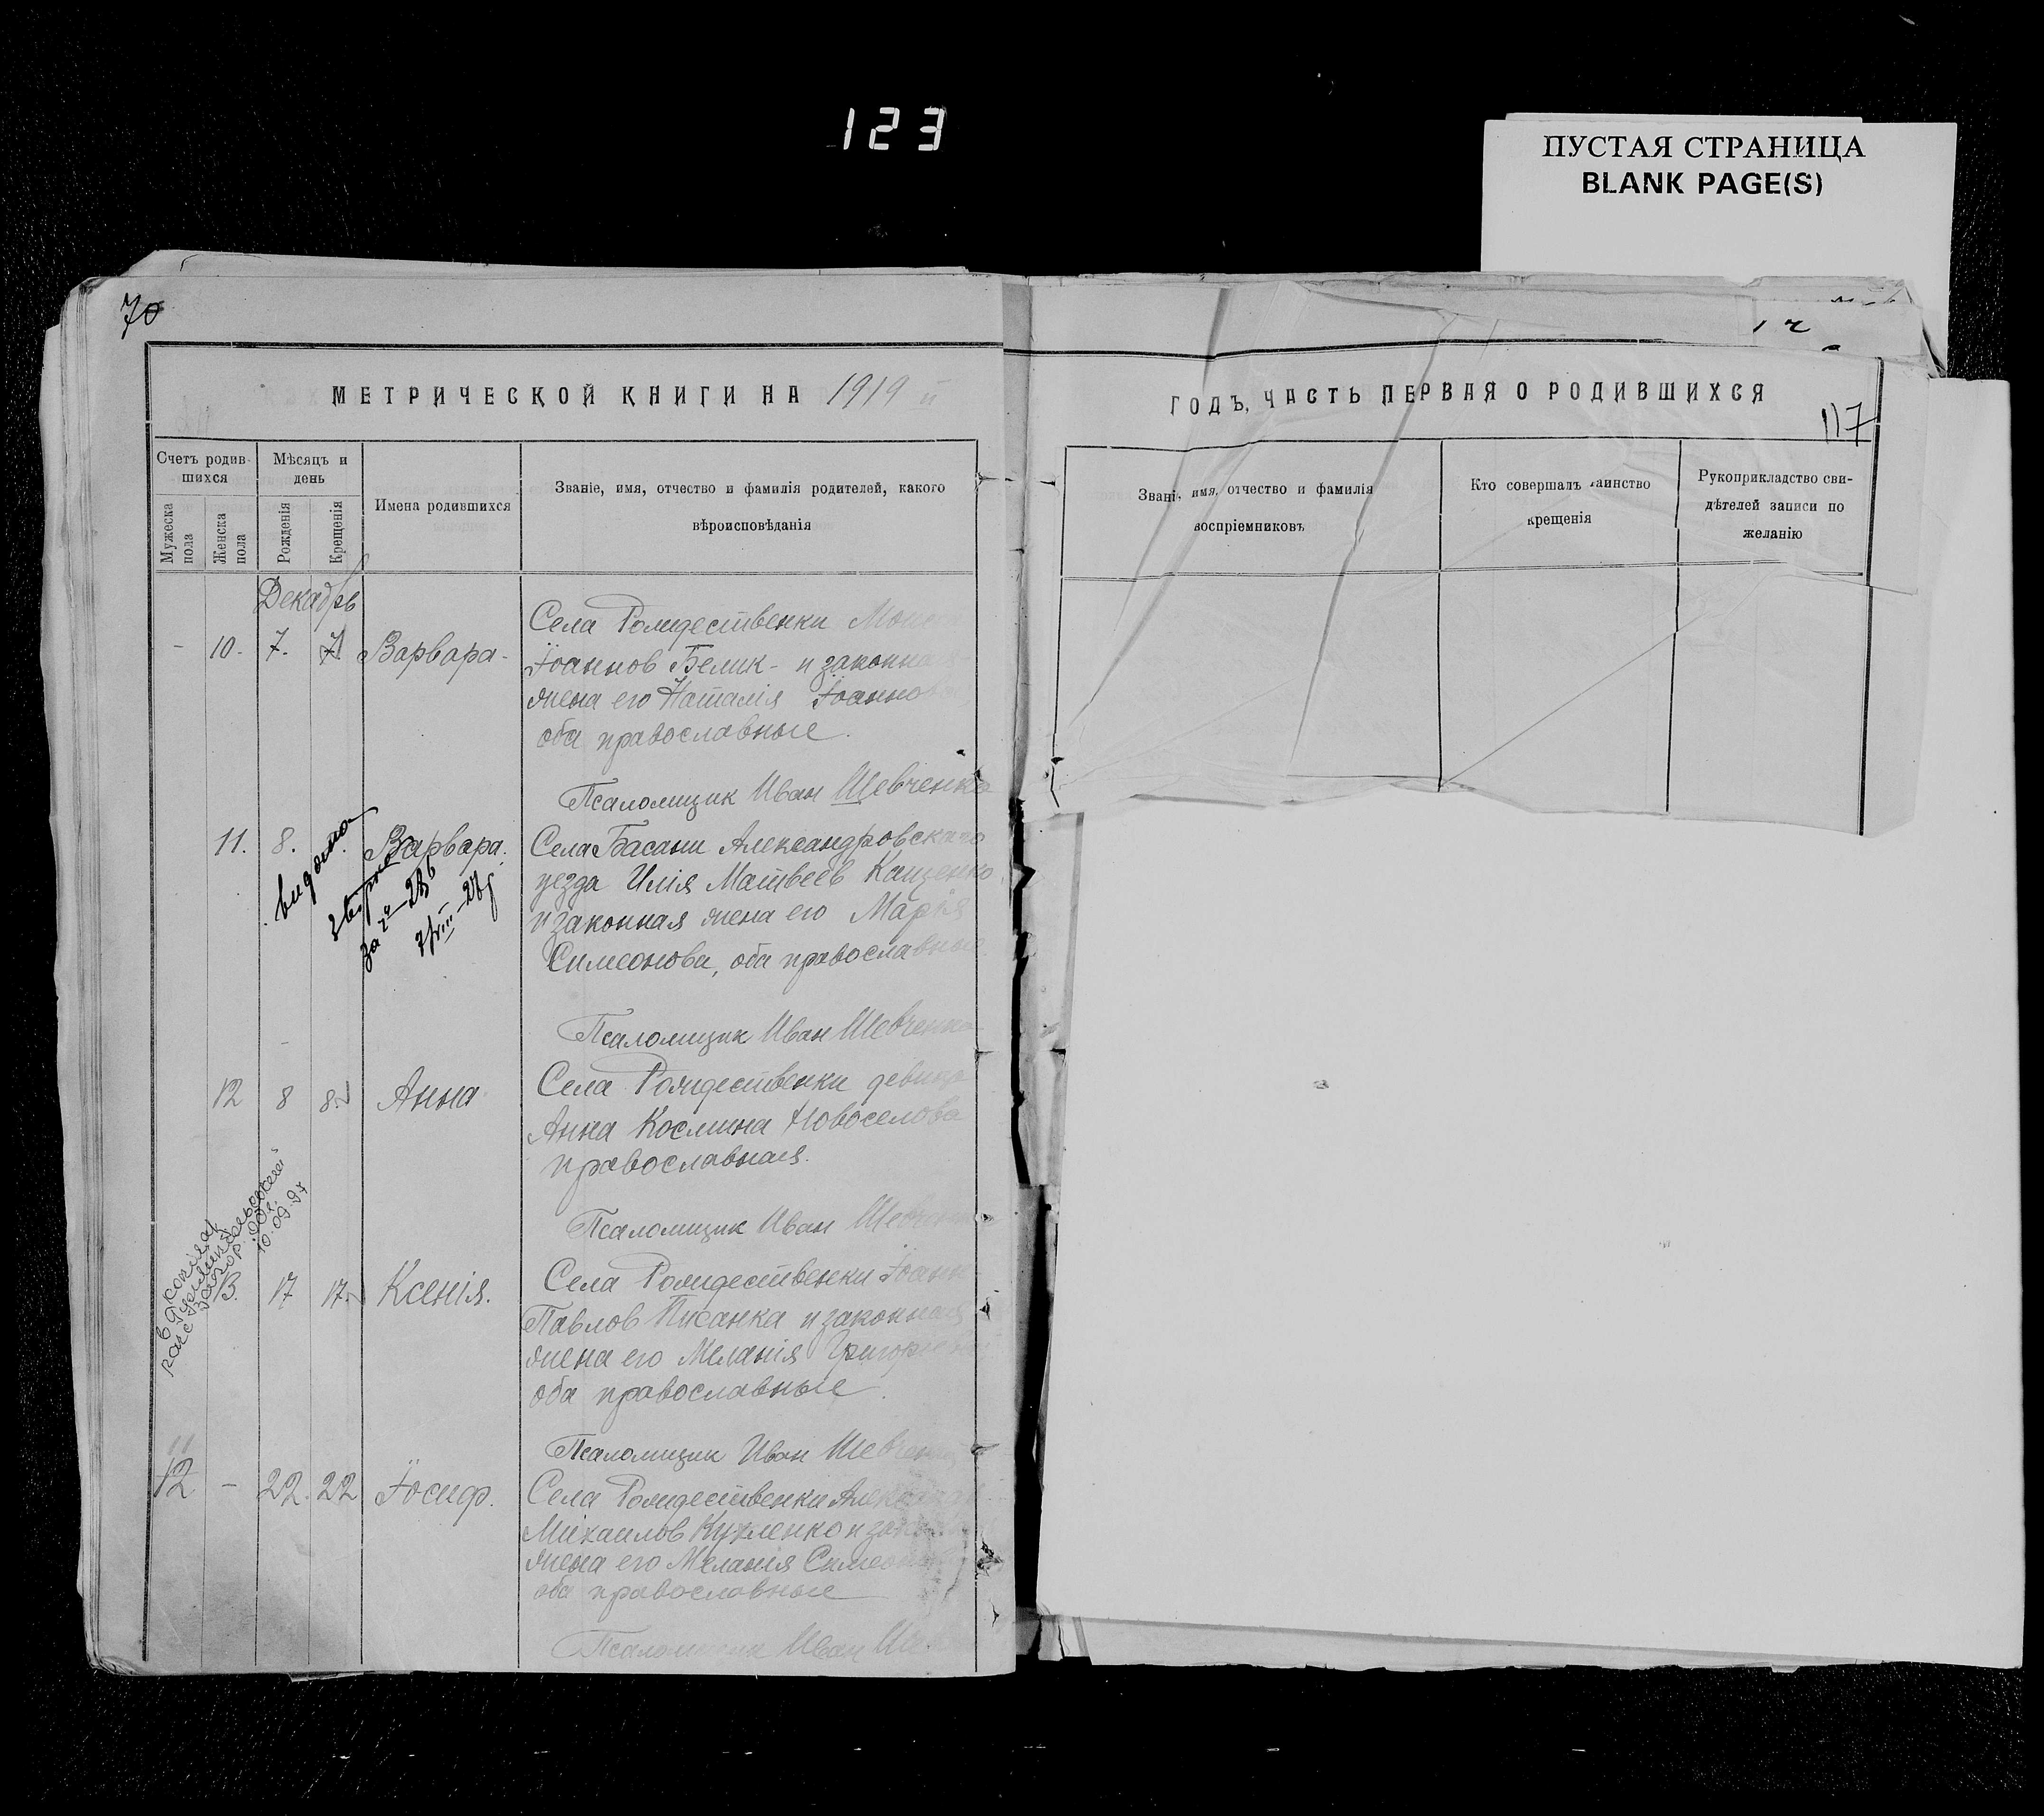 123
ПУСТАЯ СТРАНИЦА
BLANK PAGE(S)
70
МЕТРИЧЕСКОЙ КНИГИ НА 1919 й
Счетъ родив-
шихся
Мѣсяцъ и
день
Мужеска
пола
Женска
пола
Рожденія
Крещенія
Имена родившихся
Званіе, имя, отчество и фамилія родителей, какого
вѣроисповѣданія
Декабрь
10. 7. 7 Варвара
Села Рождественки
Іоаннов Белик и законная
жена его Наталія Іоаннова
оба православные.
Псаломщик Иван Шевченко
11. 8. Варвара.
видана
за № 286
7/VIII-27
Села Басани Александровскаго
уезда Илія Матвеев Кащенко
и законная жена его Марія
Симеонова, оба православные
Псаломщик Иван Шевченко
12 8 8. Анна
Села Рождественки девица
Анна Космина Новоселова
православная.
Псаломщик Иван Шевченко
10.09.97
13. 17 17. Ксенія.
Села Рождественки Іоанн
Павлов Писанка и законная
жена его Меланія Григорьева
оба православные.
Псаломщик Иван Шевченко
11
12 - 22. 22 Іосиф.
Села Рождественки
Михаилов и
жена его Меланія
оба православные
Псаломщик Иван
ГОДЪ, ЧАСТЬ ПЕРВАЯ О РОДИВШИХСЯ
117
имя, отчество и фамилія
воспріемниковъ
Кто совершалъ таинство
крещенія
Рукоприкладство сви-
дѣтелей записи по
желанію